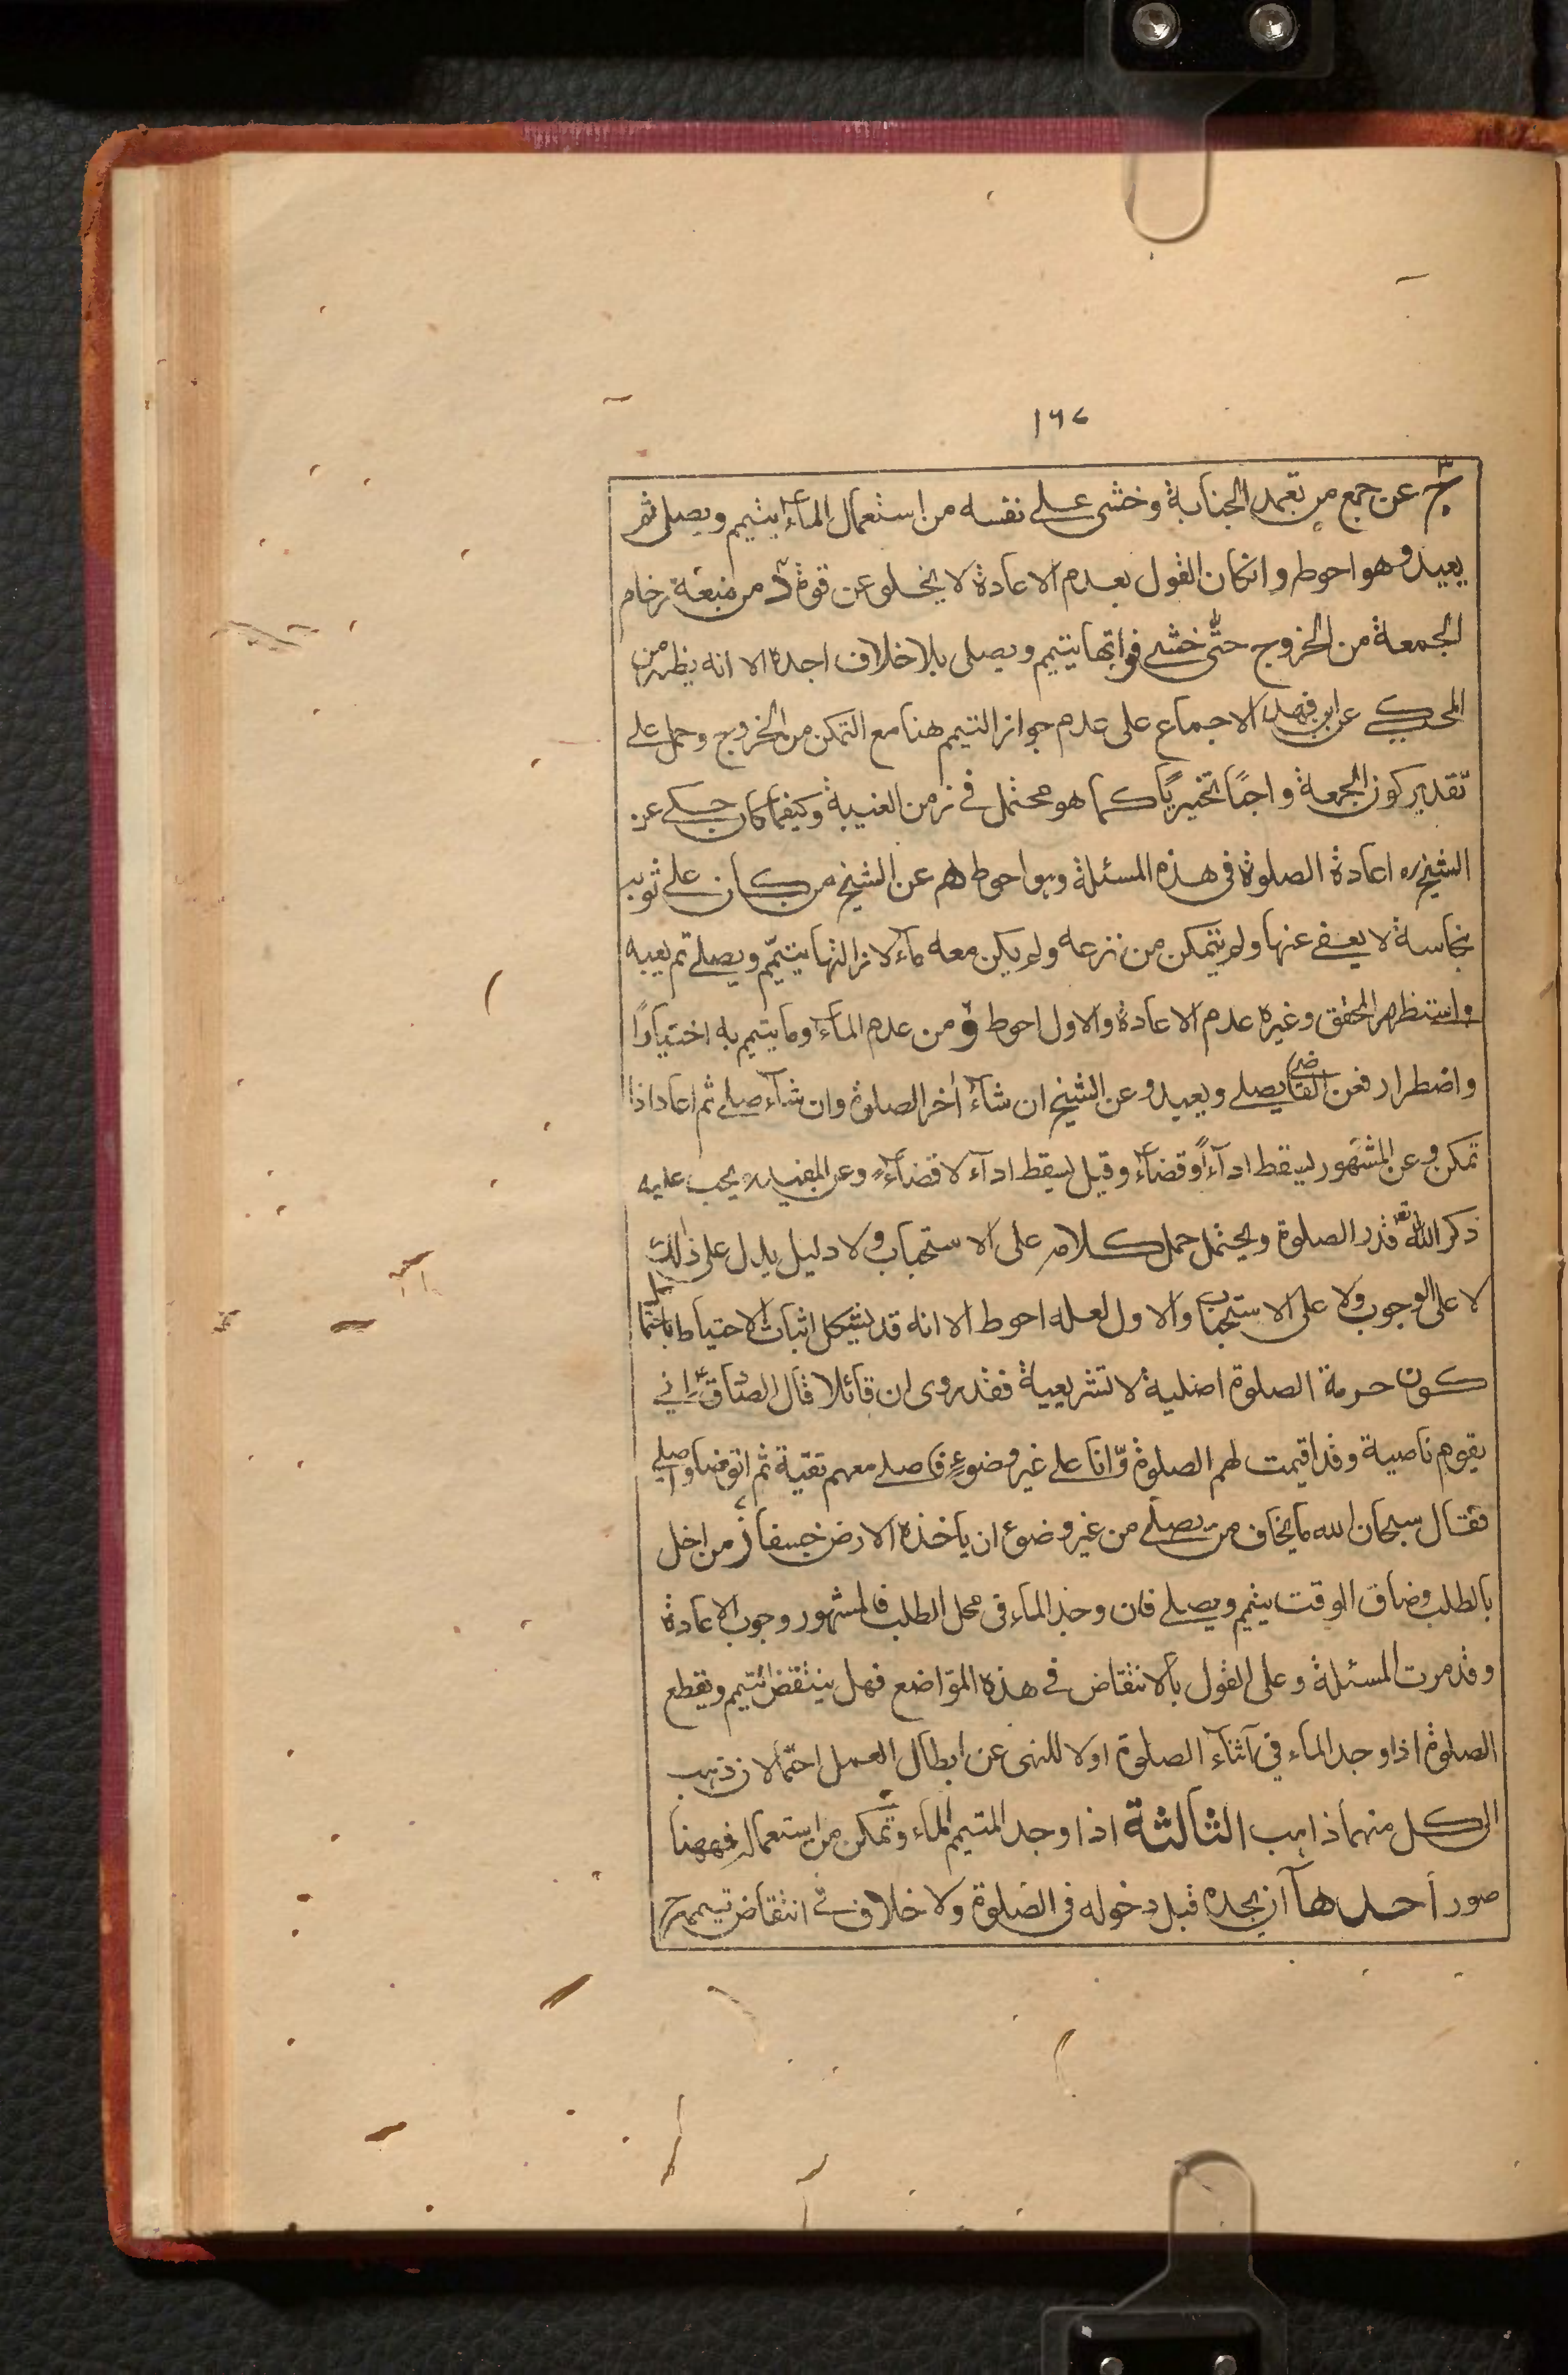 ١٦٧
ج عن جمع من تعمد الجنابة وخشى على نفسه من استعمال المآء يتيمم ويصلى ثم
يعيد وهو احوط وانكان القول بعدم الاعادة لا يخلو عن قوة د من منعه زحام
الجمعة من الخروج حتّى خشى فواتها يتيمم ويصلى بلا خلاف اجده الا انه يظهر من
المحكي عن ابن فهد الاجماع على عدم جواز التيمم هنا مع التمكن من الخروج وحمل على
تقدير كون الجمعة واجبًا تخييريًا كما هو محتمل في زمن الغيبة وكيفما كان حكى عن
الشيخ ره اعادة الصلوة فى هذه المسئلة وهو احوط هم عن الشيخ من كان على ثوبه
نجاسة لا يعفى عنها ولم يتمكن من نزعه ولم يكن معه مآء لازالتها يتيمّم ويصلى ثم يعيد
واستظهر المحقق وغيره عدم الاعادة والاول احوط و من عدم المآء وما يتيمم به اختيارًا
واضطرار فعن القاضى يصلى ويعيد وعن الشيخ ان شآء أخر الصلوة وان شآء صلى ثم اعاد اذا
تمكن وعن المشهور يسقط ادآءً وقضآءً وقيل يسقط ادآء لا قضآءً وعن المفيد ره يجب عليه
ذكر اللّه تع قدر الصلوة ويحتمل حمل كلامه على الاستحباب ولا دليل يدل على ذلك
لا على الوجوب ولا على الاستحباب والاول لعله احوط الا انه قد يشكل اثبات الاحتياط باحتمال
كون حرمة الصلوة اصلية لا تشريعية فقد روى ان قائلا قال للصّادق انى
بقوم ناصبية وقد اقيمت لهم الصلوة وّانا على غير وضوءٍ فاصلى معهم تقيّة ثم اتوضا واصلى
فقال سبحان الله ما يخاف من يصلّى من غير وضوء ان ياخذه الارض خسفا ز من اخل
بالطلب وضاق الوقت يتيمم ويصلى فان وجد الماء فى محل الطلب فالمشهور وجوب الاعادة
وقد مرت المسئلة وعلى القول بالانتقاض في هذه المواضع فهل ينتقض التيمم ويقطع
الصلوة اذا وجد الماء في اثنآء الصلوة اولا للنهى عن ابطال العمل احتمالان ذهب
الى كل منهما ذاهب الثالثة اذا وجد المتيمم الماء وتمكن من استعماله فههنا
صور أحدهآ ان يجده قبل دخوله فى الصلوة ولا خلاف في انتقاض تيممه ح